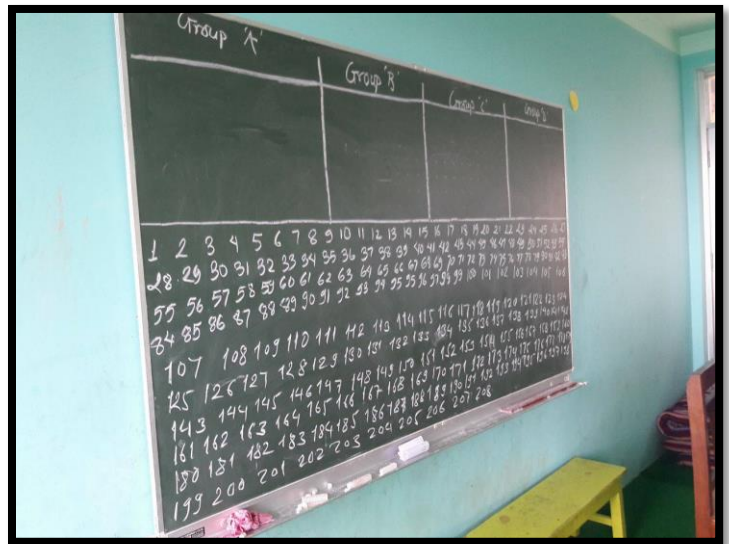 Group 'A'
Group 'B'
Group 'C'
Group D
1 2 3 4 5 6 7 8 9 10 11 12 13 14 15 16 17 18 19 20 21 22 23 24 25 26 27
28 29 30 31 32 33 34 35 36 37 38 39 40 41 42 43 44 45 46 47 48 49 50 51 52 53 54
55 56 57 58 59 60 61 62 63 64 65 66 67 68 69 70 71 72 73 74 75 76 77 78 79 80 81 82 83
84 85 86 87 88 89 90 91 92 93 94 95 95 96 97 98 99 100 101 102 103 104 105 106
107 108 109 110 111 112 113 114 115 116 117 118 119 120 121 122 123 124
125 126 127 128 129 130 131 132 133 134 135 136 137 138 139 140 141 142
143 144 145 146 147 148 149 150 151 152 153 154 155 156 157 158 159 160
161 162 163 164 165 166 167 168 169 170 171 172 173 174 175 176 177 178 179
180 181 182 183 184 185 186 187 188 189 190 191 192 193 194 195 196 197 198
199 200 201 202 203 204 205 206 207 208